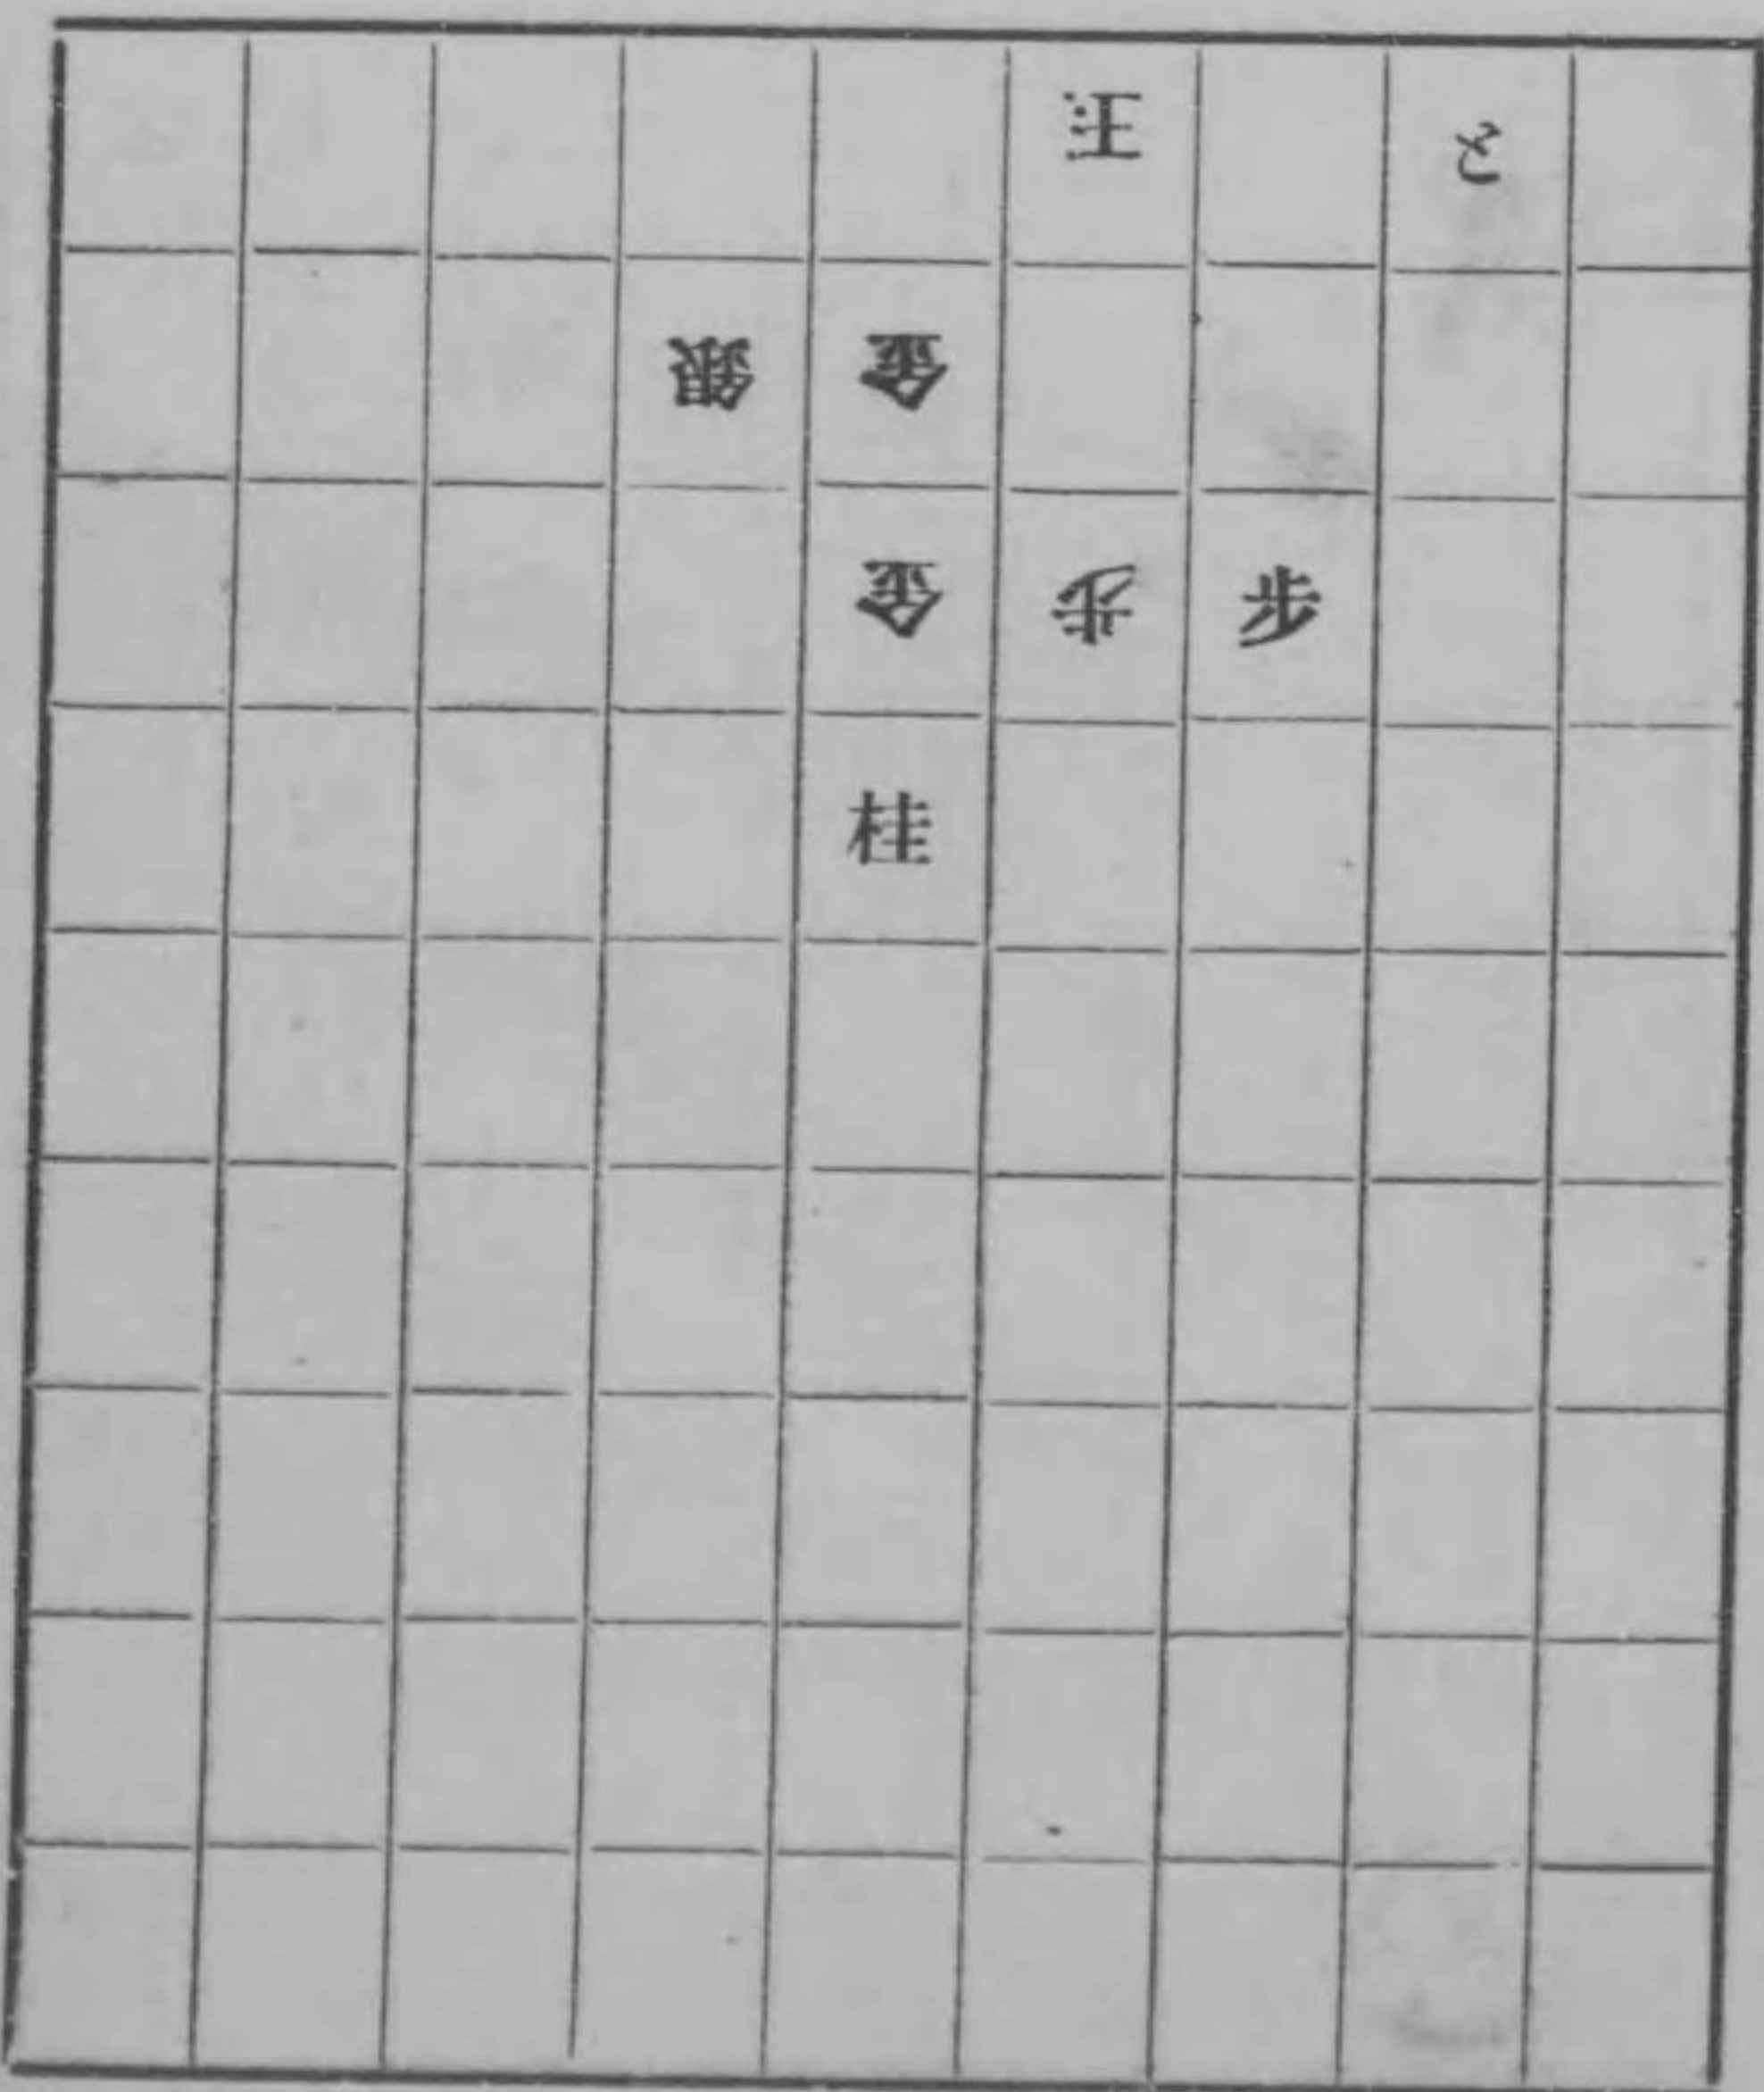 王 と
銀 金
金 歩 歩
桂